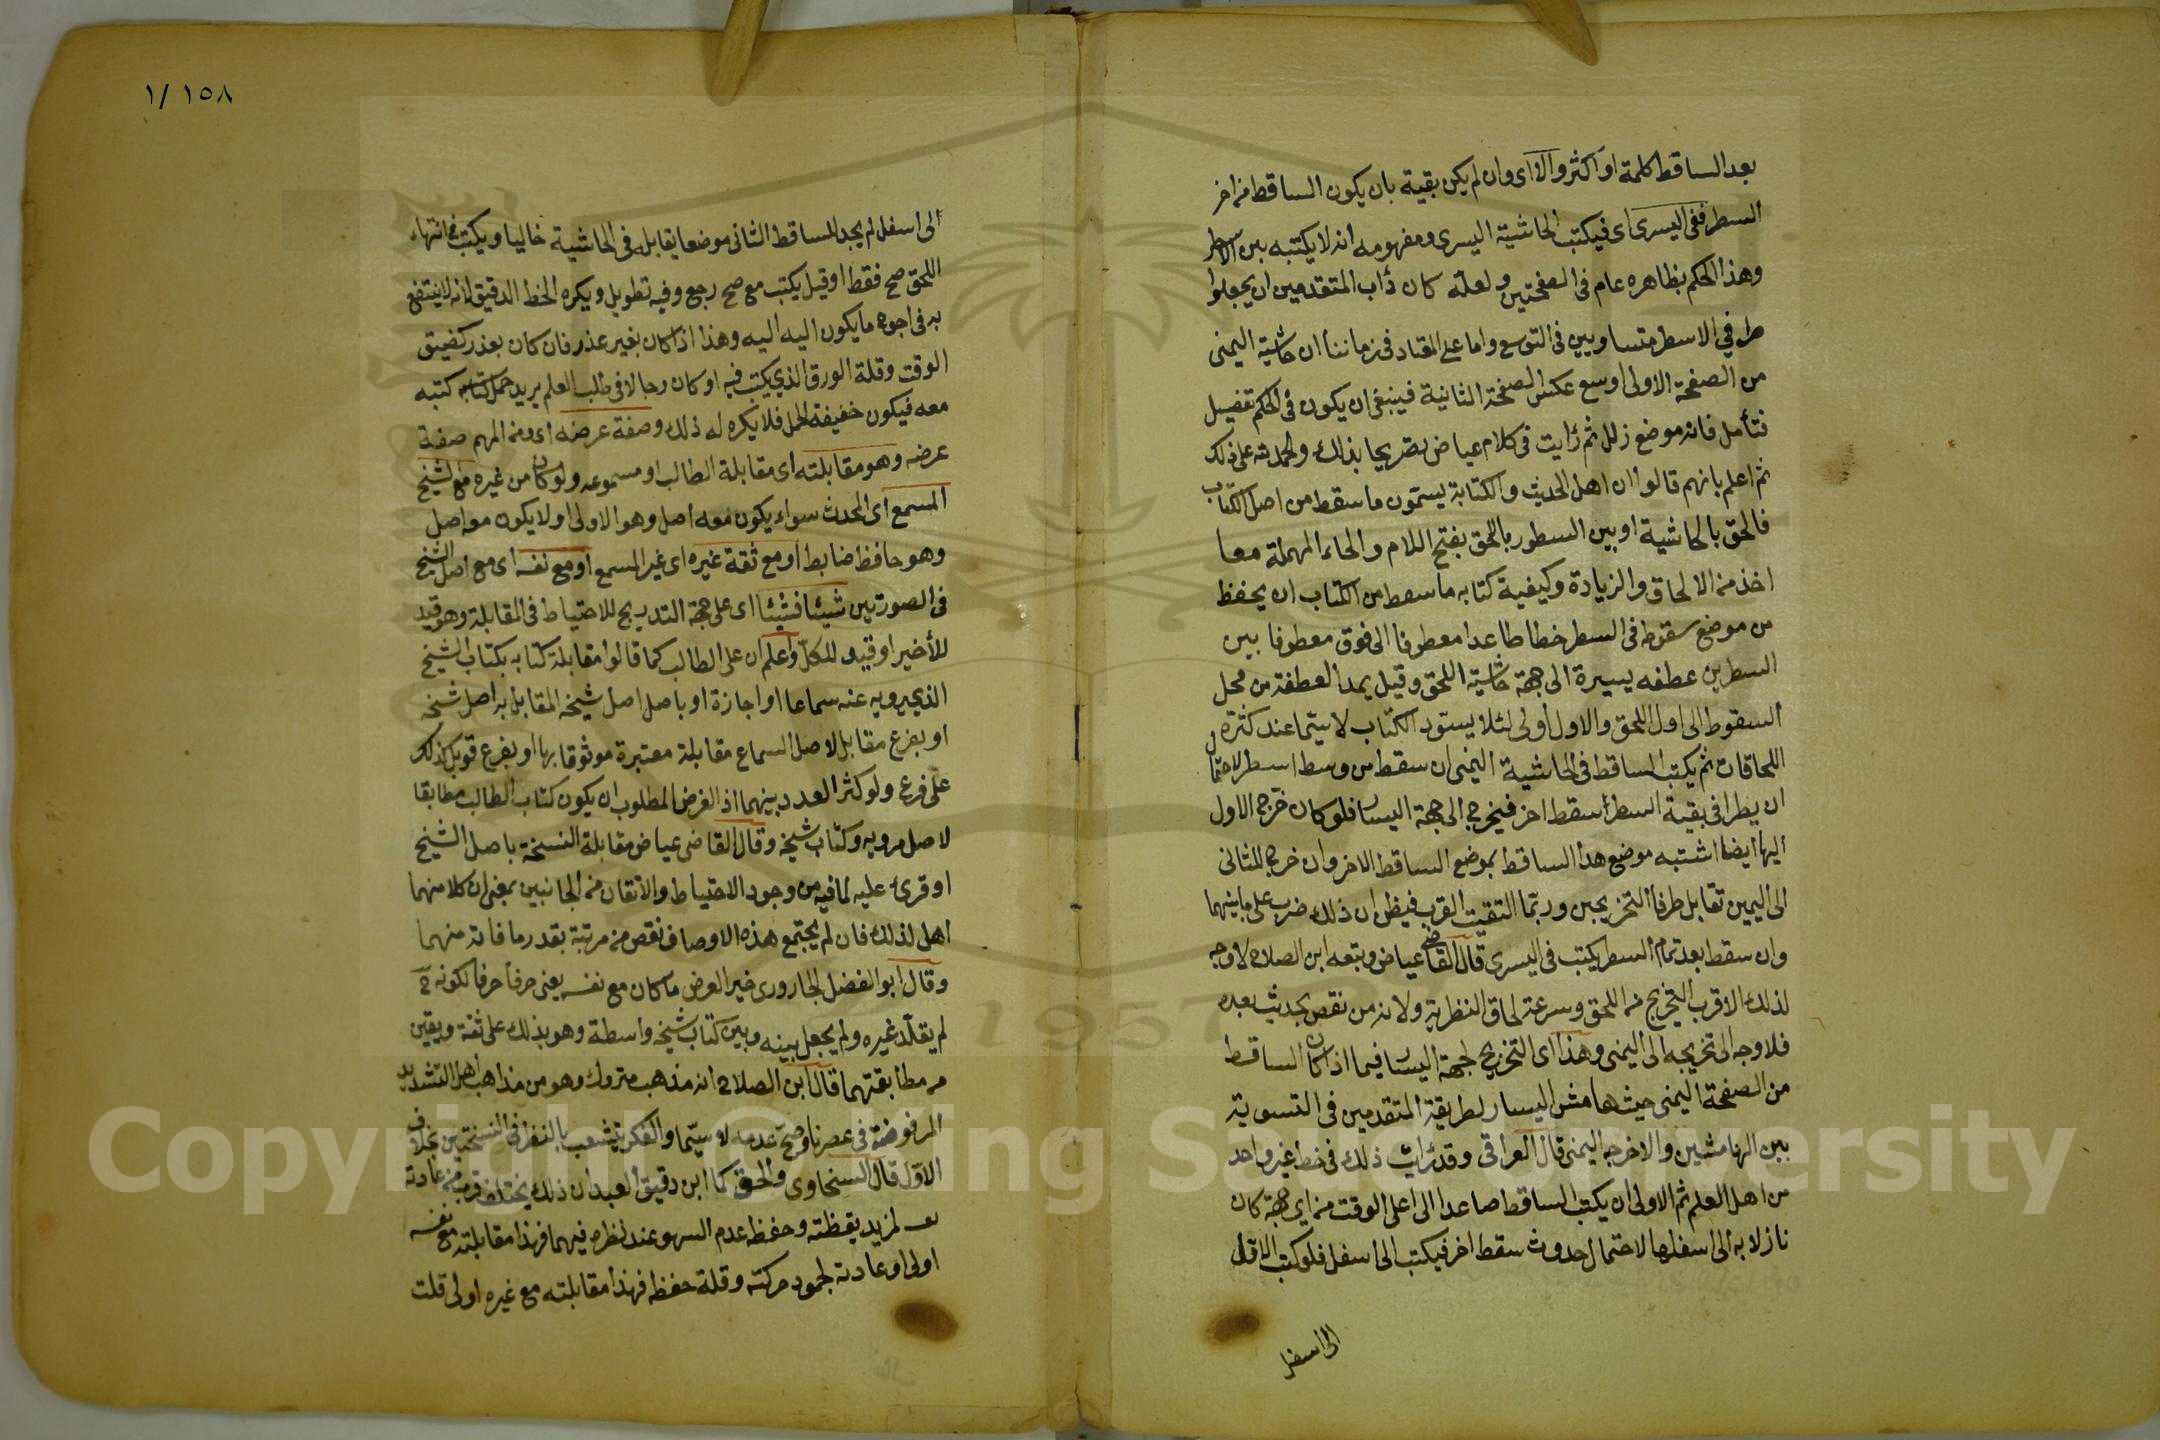 بعد الساقط كلمة او اكثر والا اى وان لم يكن بقية بان يكون الساقط من اخر
السطر ففى اليسرى اى فيكتب الحاشية اليسرى ومفهومه انه لا يكتبه بين الاسطر
وهذا الحكم بظاهره عام فى الصفحتين ولعله كان دأب المتقدمين ان يجعلوا
طرفي الاسطر متساويين فى التوسع واما على المعتاد فى زماننا ان حاشية اليمنى
من الصفحة الاولى اوسع عكس الصفحة الثانية فينبغى ان يكون فى الحكم تفصيل
فتأمل فانه موضع زلل ثم رايت فى كلام عياض تصريحا بذلك والحمد لله على ذلك
ثم اعلم بانهم قالوا ان اهل الحديث والكتابة يسمون ما سقط من اصل الكتاب
فالحق بالحاشية او بين السطور باللحق بفتح اللام والحاء المهملة معا
اخذ من الالحاق والزيادة وكيفية كتابه ما سقط من الكتاب ان يحفظ
من موضع سقوطه فى السطر خطا طاعدا معطوفا الى فوق معطوفا بين
السطرين عطفه يسيرة الى جهة حاشية اللحق وقيل يمد العطفة من محل
السقوط الى اول اللحق والاول أولى لئلا يسود الكتاب لا سيما عند كثرة
اللحاقات ثم يكتب الساقط فى الحاشية اليمنى ان سقط من وسط اسطر لاحتمال
ان يطرا فى بقية السطر سقط اخر فيخرج الى جهة اليسار فلو كان خرج الاول
اليها ايضا اشتبه موضع هذا الساقط بموضع الساقط الاخر وان خرج للثانى
الى اليمين تقابل طرفا التخريجين وربما التقيت القرب فيظن ان ذلك ضرب على ما بينهما
وان سقط بعد تمام السطر يكتب فى اليسرى قال القاضى عياض وتبعه ابن الصلاح لا وجه
لذلك الاقرب التخريج من اللحق وسرعة لحاق النظر به ولانه من نقص يحديث بعده
فلا وجه الى تخريجه الى اليمنى وهذا اى التخريج لجهة اليسار فيما اذا كان الساقط
من الصفحة اليمنى حيث هامش اليسار لطريقة المتقدمين فى التسوية
بين الهامشين والاخرجه اليمنى قال العراقى وقد رأيت ذلك فى خط غير واحد
من اهل العلم ثم الاولى ان يكتب الساقط صاعدا الى اعلى الوقت من اى جهة كان
نازلا به الى اسفلها لاحتمال حدوث سقط اخر فيكتب الى اسفل فلو كتب الاول
الى اسفل
١٥٨ /١
الى اسفل لم يجد للساقط الثانى موضعا يقابله فى الحاشية خاليا ويكتب فى انتهاء
اللحق صح فقط او قيل يكتب مع صح رجع وفيه تطويل ويكره الخط الدقيق لانه لا ينتفع
به فى اجوه ما يكون اليه اليه وهذا اذا كان بغير عذر فان كان بعذر كضيق
الوقت وقلة الورق الذي يكتب فيه او كان رحالا فى طلب العلم يريد حمل كتابه كتبه
معه فيكون خفيفة الحمل فلا يكره له ذلك وصفة عرضه اى ومن المهم صفة
عرضه وهو مقابلته اى مقابلة الطالب او مسموعه ولو كان من غيره مع الشيخ
المسمع اى المحدث سواء يكون معه اصل وهو الاولى او لا يكون معه اصل
وهو حافظ ضابط او مع ثقة غيره اى غير المسمع أو مع نفسه اى مع اصل الشيخ
فى الصورتين شيئا فشيئا اى على جهة التدريج للاحتياط فى المقابلة وهو قيد
للأخير او قيد للكل واعلم ان على الطالب كما قالوا مقابلة كتابه بكتاب الشيخ
الذي يرويه عنه سماعا او اجازة او باصل اصل شيخه المقابل به اصل شيخه
او بفرع مقابل لاصل السماع مقابلة معتبرة موثوقا بها او بفرع قوبل كذلك
على فرع ولو كثر العدد بينهما اذ الغرض المطلوب ان يكون كتاب الطالب مطابقا
لاصل مرويه وكتاب شيخه وقال القاضى عياض مقابلة النسخة باصل الشيخ
او قرئ عليه لما فيه من وجود الاحتياط والاتقان من الجانبين بمعنى ان كلا منهما
اهل لذلك فان لم يجتمع هذه الاوصاف نقص من مرتبة بقدر ما فاته منهما
وقال ابو الفضل الجارودى خير العرض ما كان مع نفسه يعنى حرفا حرفا لكونه ح
لم يقلد غيره ولم يجعل بينه وبين كتاب شيخه واسطة وهو بذلك على ثقة ويقين
من مطابقتهما قال ابن الصلاح انه مذهب متروك وهو من مذاهب اهل التشديد
المرفوضة فى عصرنا وصح عدمه لا سيما والفكر يتشعب بالنظر فى النسختين بخلاف
الاول قال السخاوى والحق كما ابن دقيق العيد ان ذلك يختلف فرب من عادته
لمزيد يقظته وحفظه عدم السهو عند نظره فيهما فهذا مقابلته مع نفسه
اولى او عادته لجمود حركته وقلة حفظه فهذا مقابلته مع غيره اولى قلت
Copyright © King Saud University
1957